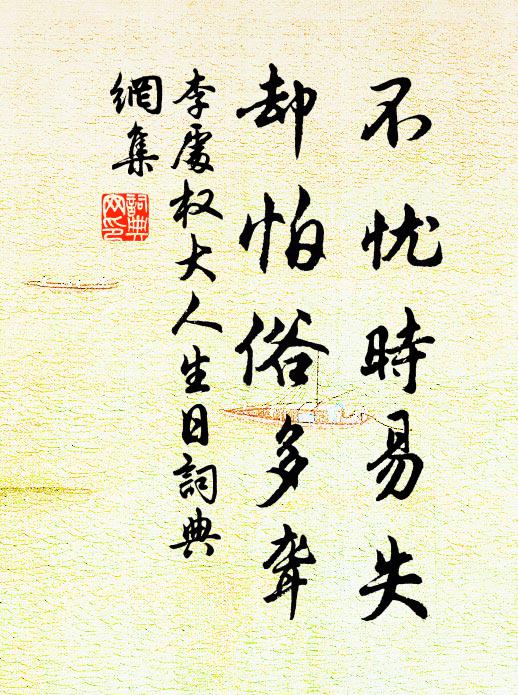 不忧時易失
却怕俗多聋
李處权大人生日詞典
網集
詞典
网印